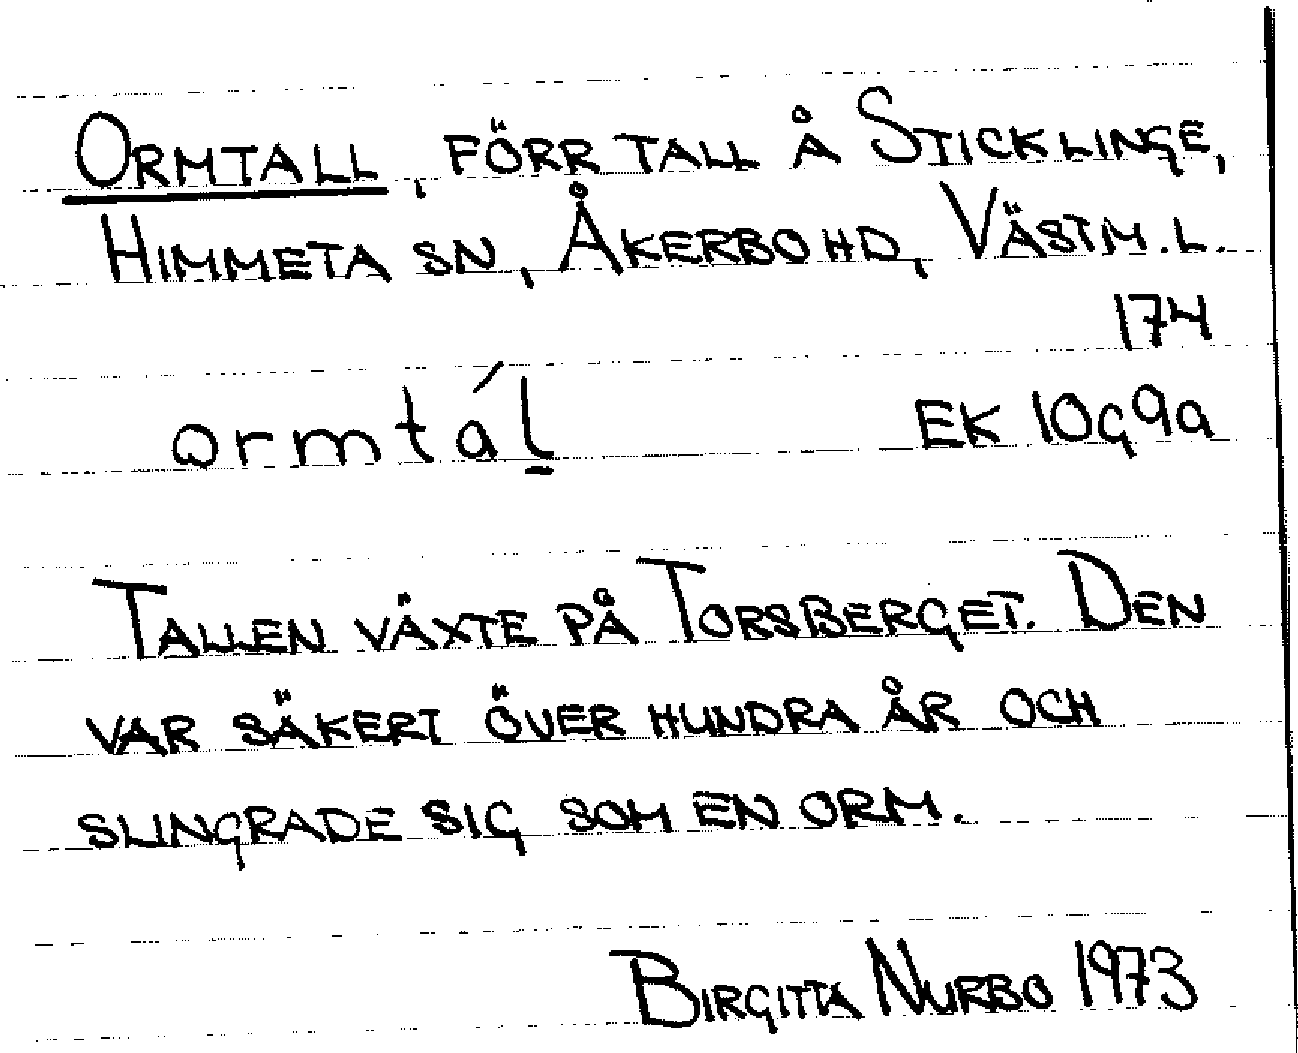 ORMTALL, FÖRR TALL Å STICKLINGE,
HIMMETA SN, ÅKERBO HD, VÄSTM.L.
174
ormtáḻ EK 10G9a
TALLEN VÄXTE PÅ TORSBERGET. DEN
VAR SÄKERT ÖVER HUNDRA ÅR OCH
SLINGRADE SIG SOM EN ORM.
BIRGITTA NURBO 1973